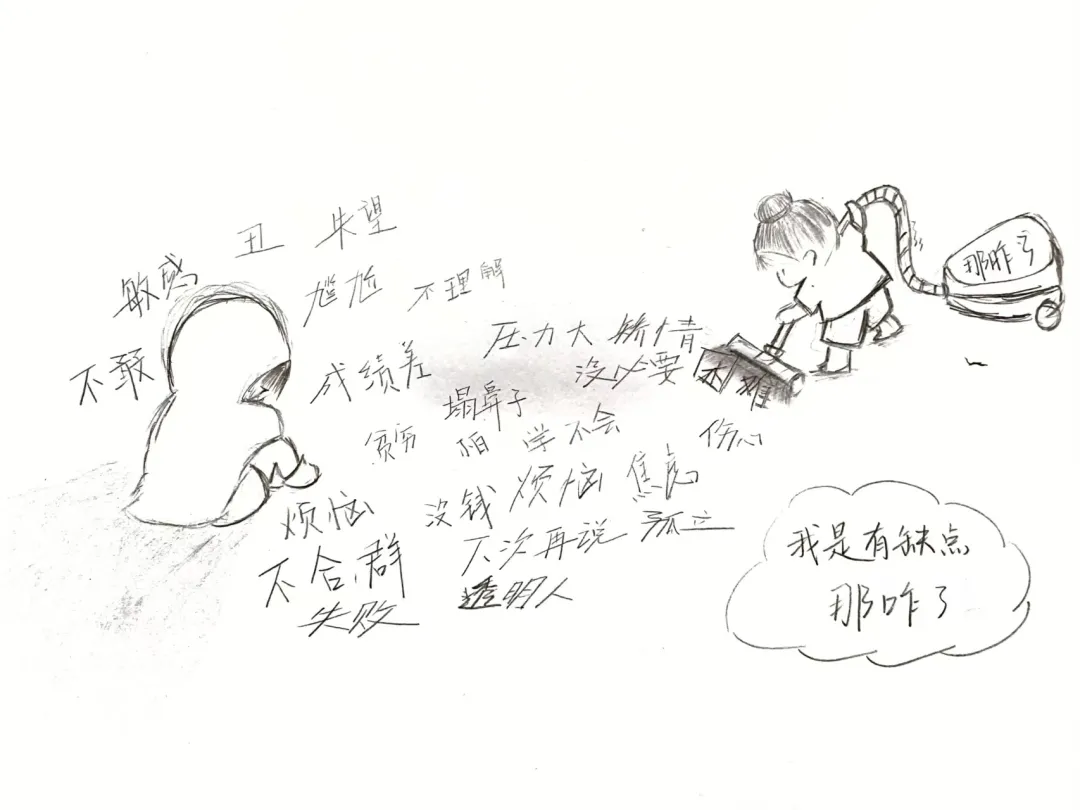 丑 失望
敏感
尴尬 不理解
那咋了
不敢
成绩差
压力大 矫情
没必要
困难
塌鼻子
贫穷
陌
学不会
伤心
烦恼
没钱 烦恼 焦虑
不合群
下次再说 孤立
失败
透明人
我是有缺点
那咋了